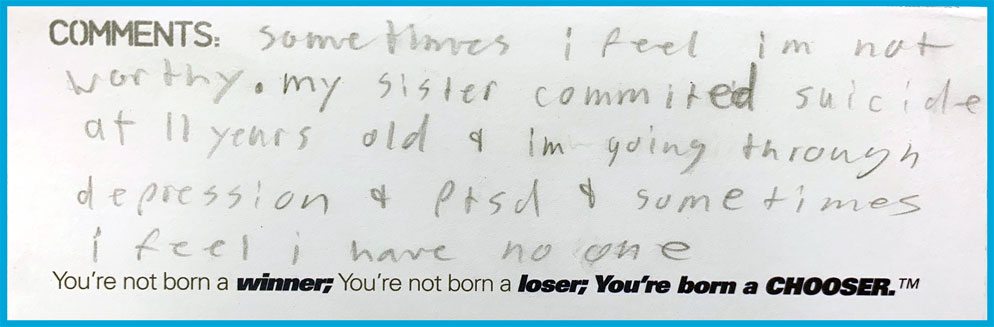 COMMENTS: sometimes i feel im not
worthy. my sister commited suicide
at 11 years old & im going through
depression & ptsd & sometimes
i feel i have no one
You're not born a winner; You're not born a loser; You're born a CHOOSER.™